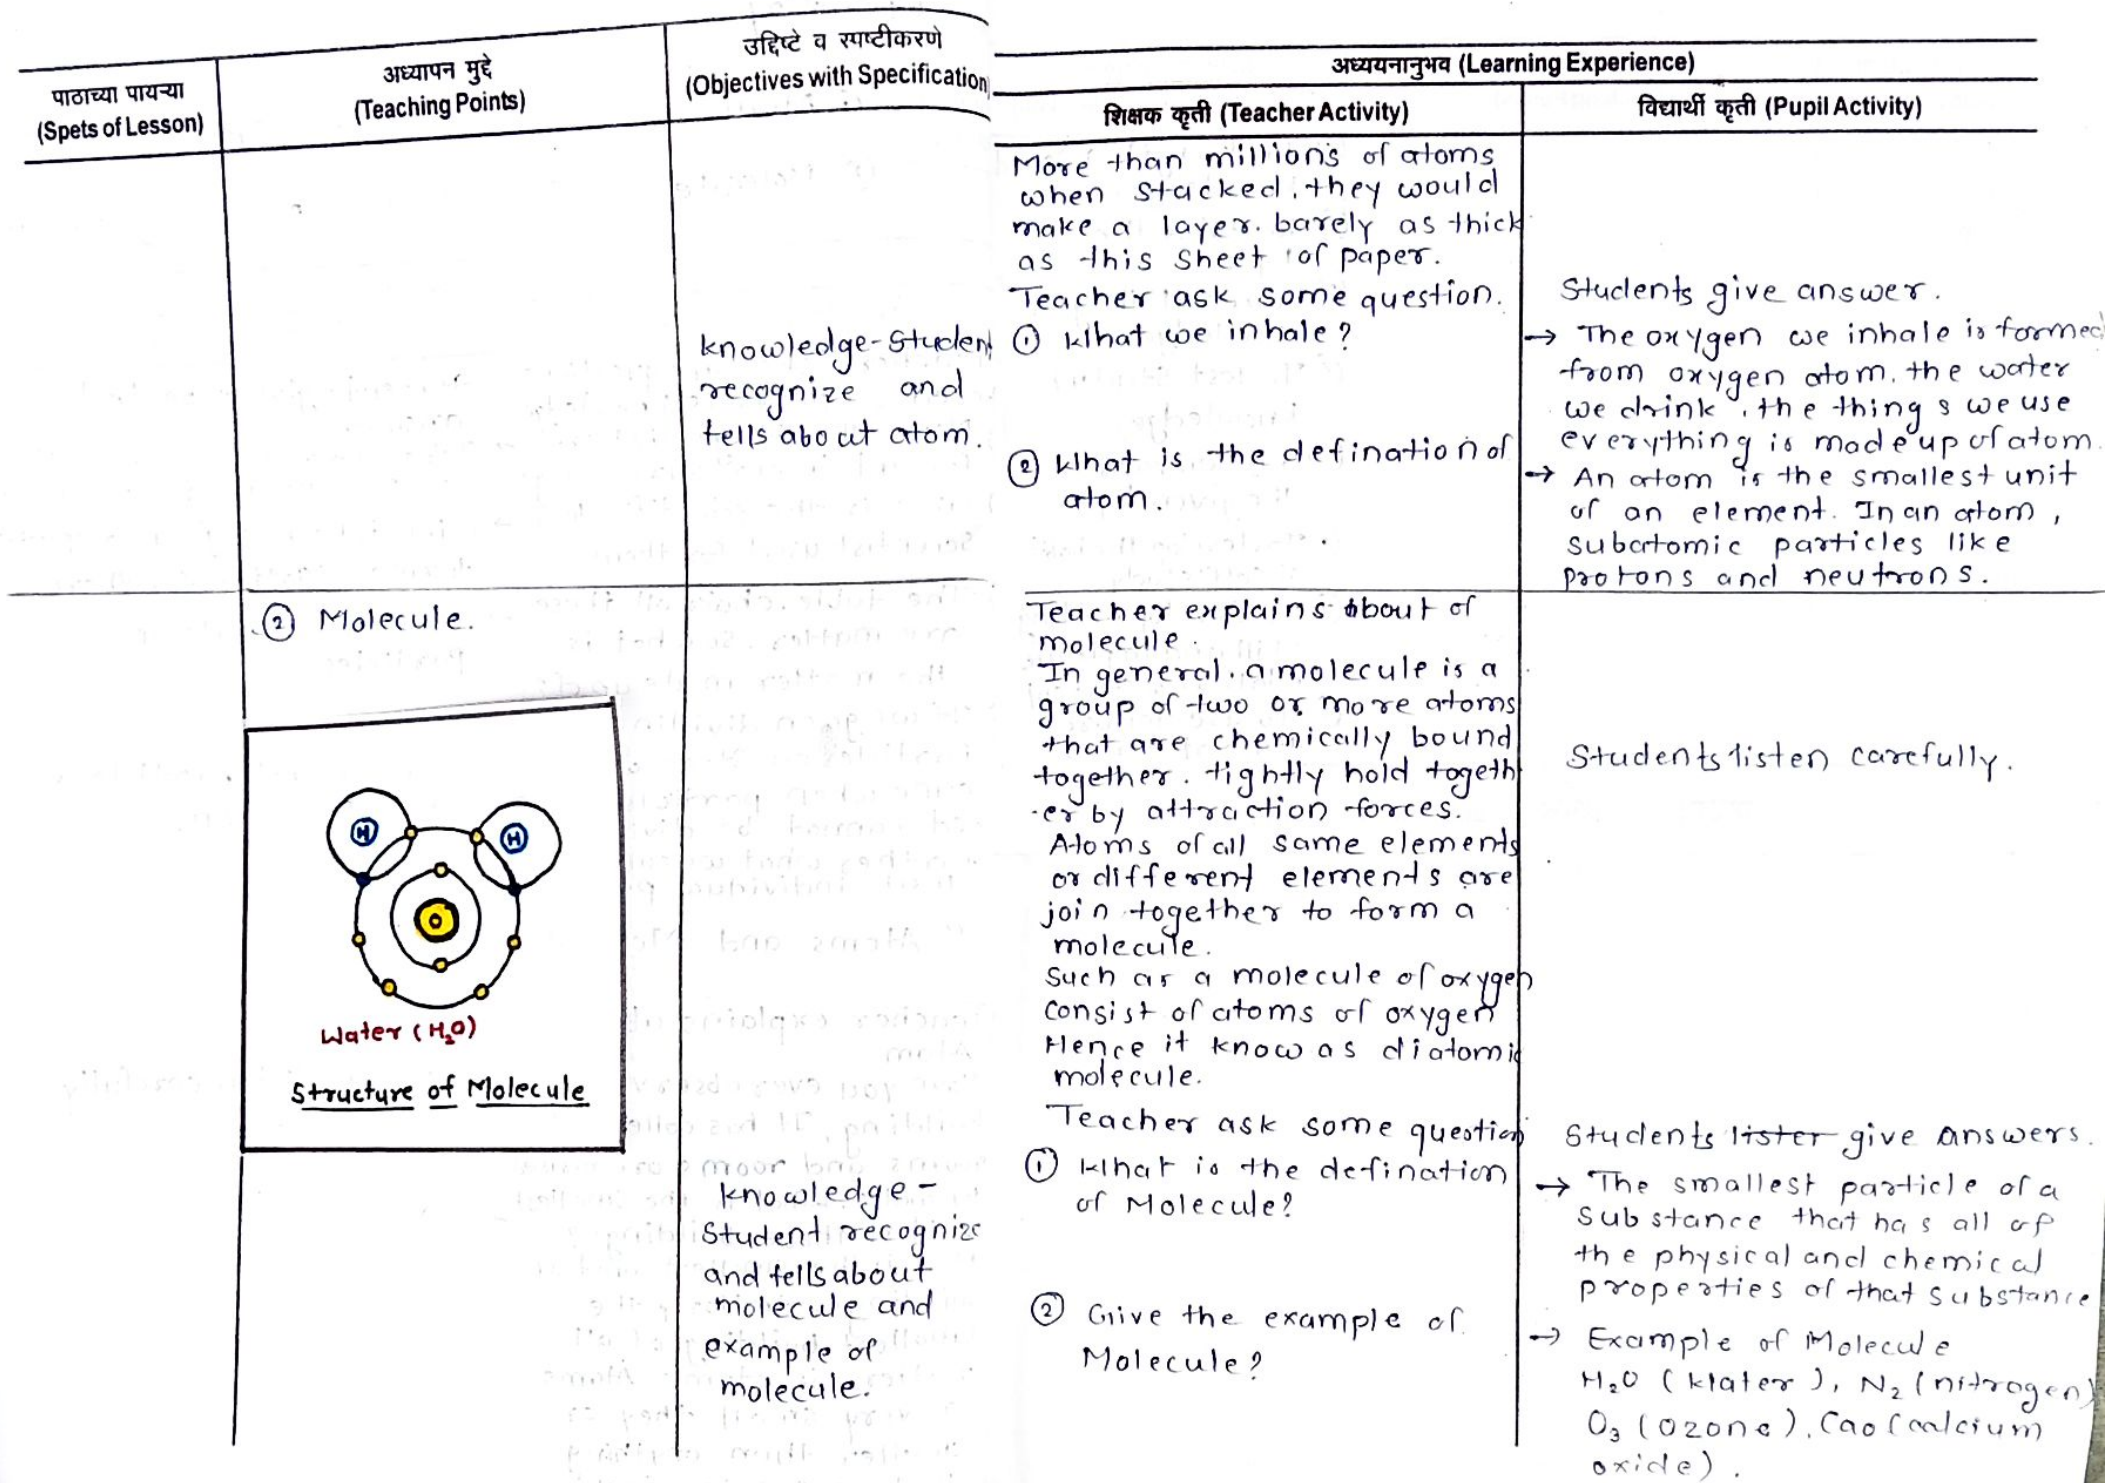 पाठाच्या पायऱ्या
(Spets of Lesson)
अध्यापन मुद्दे
(Teaching Points)
उद्दिष्टे व स्पष्टीकरणे
(Objectives with Specification
अध्ययनानुभव (Learning Experience)
शिक्षक कृती (Teacher Activity)
विद्यार्थी कृती (Pupil Activity)
knowledge-Student
recognize and
tells about atom.
More than millions of atoms
when stacked, they would
make a layer. barely as thick
as this sheet of paper.
Teacher ask some question.
① What we inhale?
② What is the defination of
atom.
Students give answer.
→ The oxygen we inhale is formed
from oxygen atom, the water
we drink, the things we use
everything is made up of atom.
→ An atom is the smallest unit
of an element. In an atom,
subatomic particles like
protons and neutrons.
② Molecule.
H
H
O
Water (H₂O)
Structure of Molecule
knowledge-
Student recognize
and tells about
molecule and
example of
molecule.
Teacher explains about of
molecule.
In general, a molecule is a
group of two or more atoms
that are chemically bound
together. tightly hold togeth
-er by attraction forces.
Atoms of all same elements
or different elements are
join together to form a
molecule.
Such as a molecule of oxygen
consist of atoms of oxygen
Hence it know as diatomic
molecule.
Teacher ask some question
① What is the defination
of Molecule?
② Give the example of
Molecule?
Students listen carefully.
Students lister give answers.
→ The smallest particle of a
substance that has all of
the physical and chemical
properties of that substance
→ Example of Molecule
H₂O (Water), N₂ (nitrogen)
O₃ (Ozone), Cao (calcium
oxide).